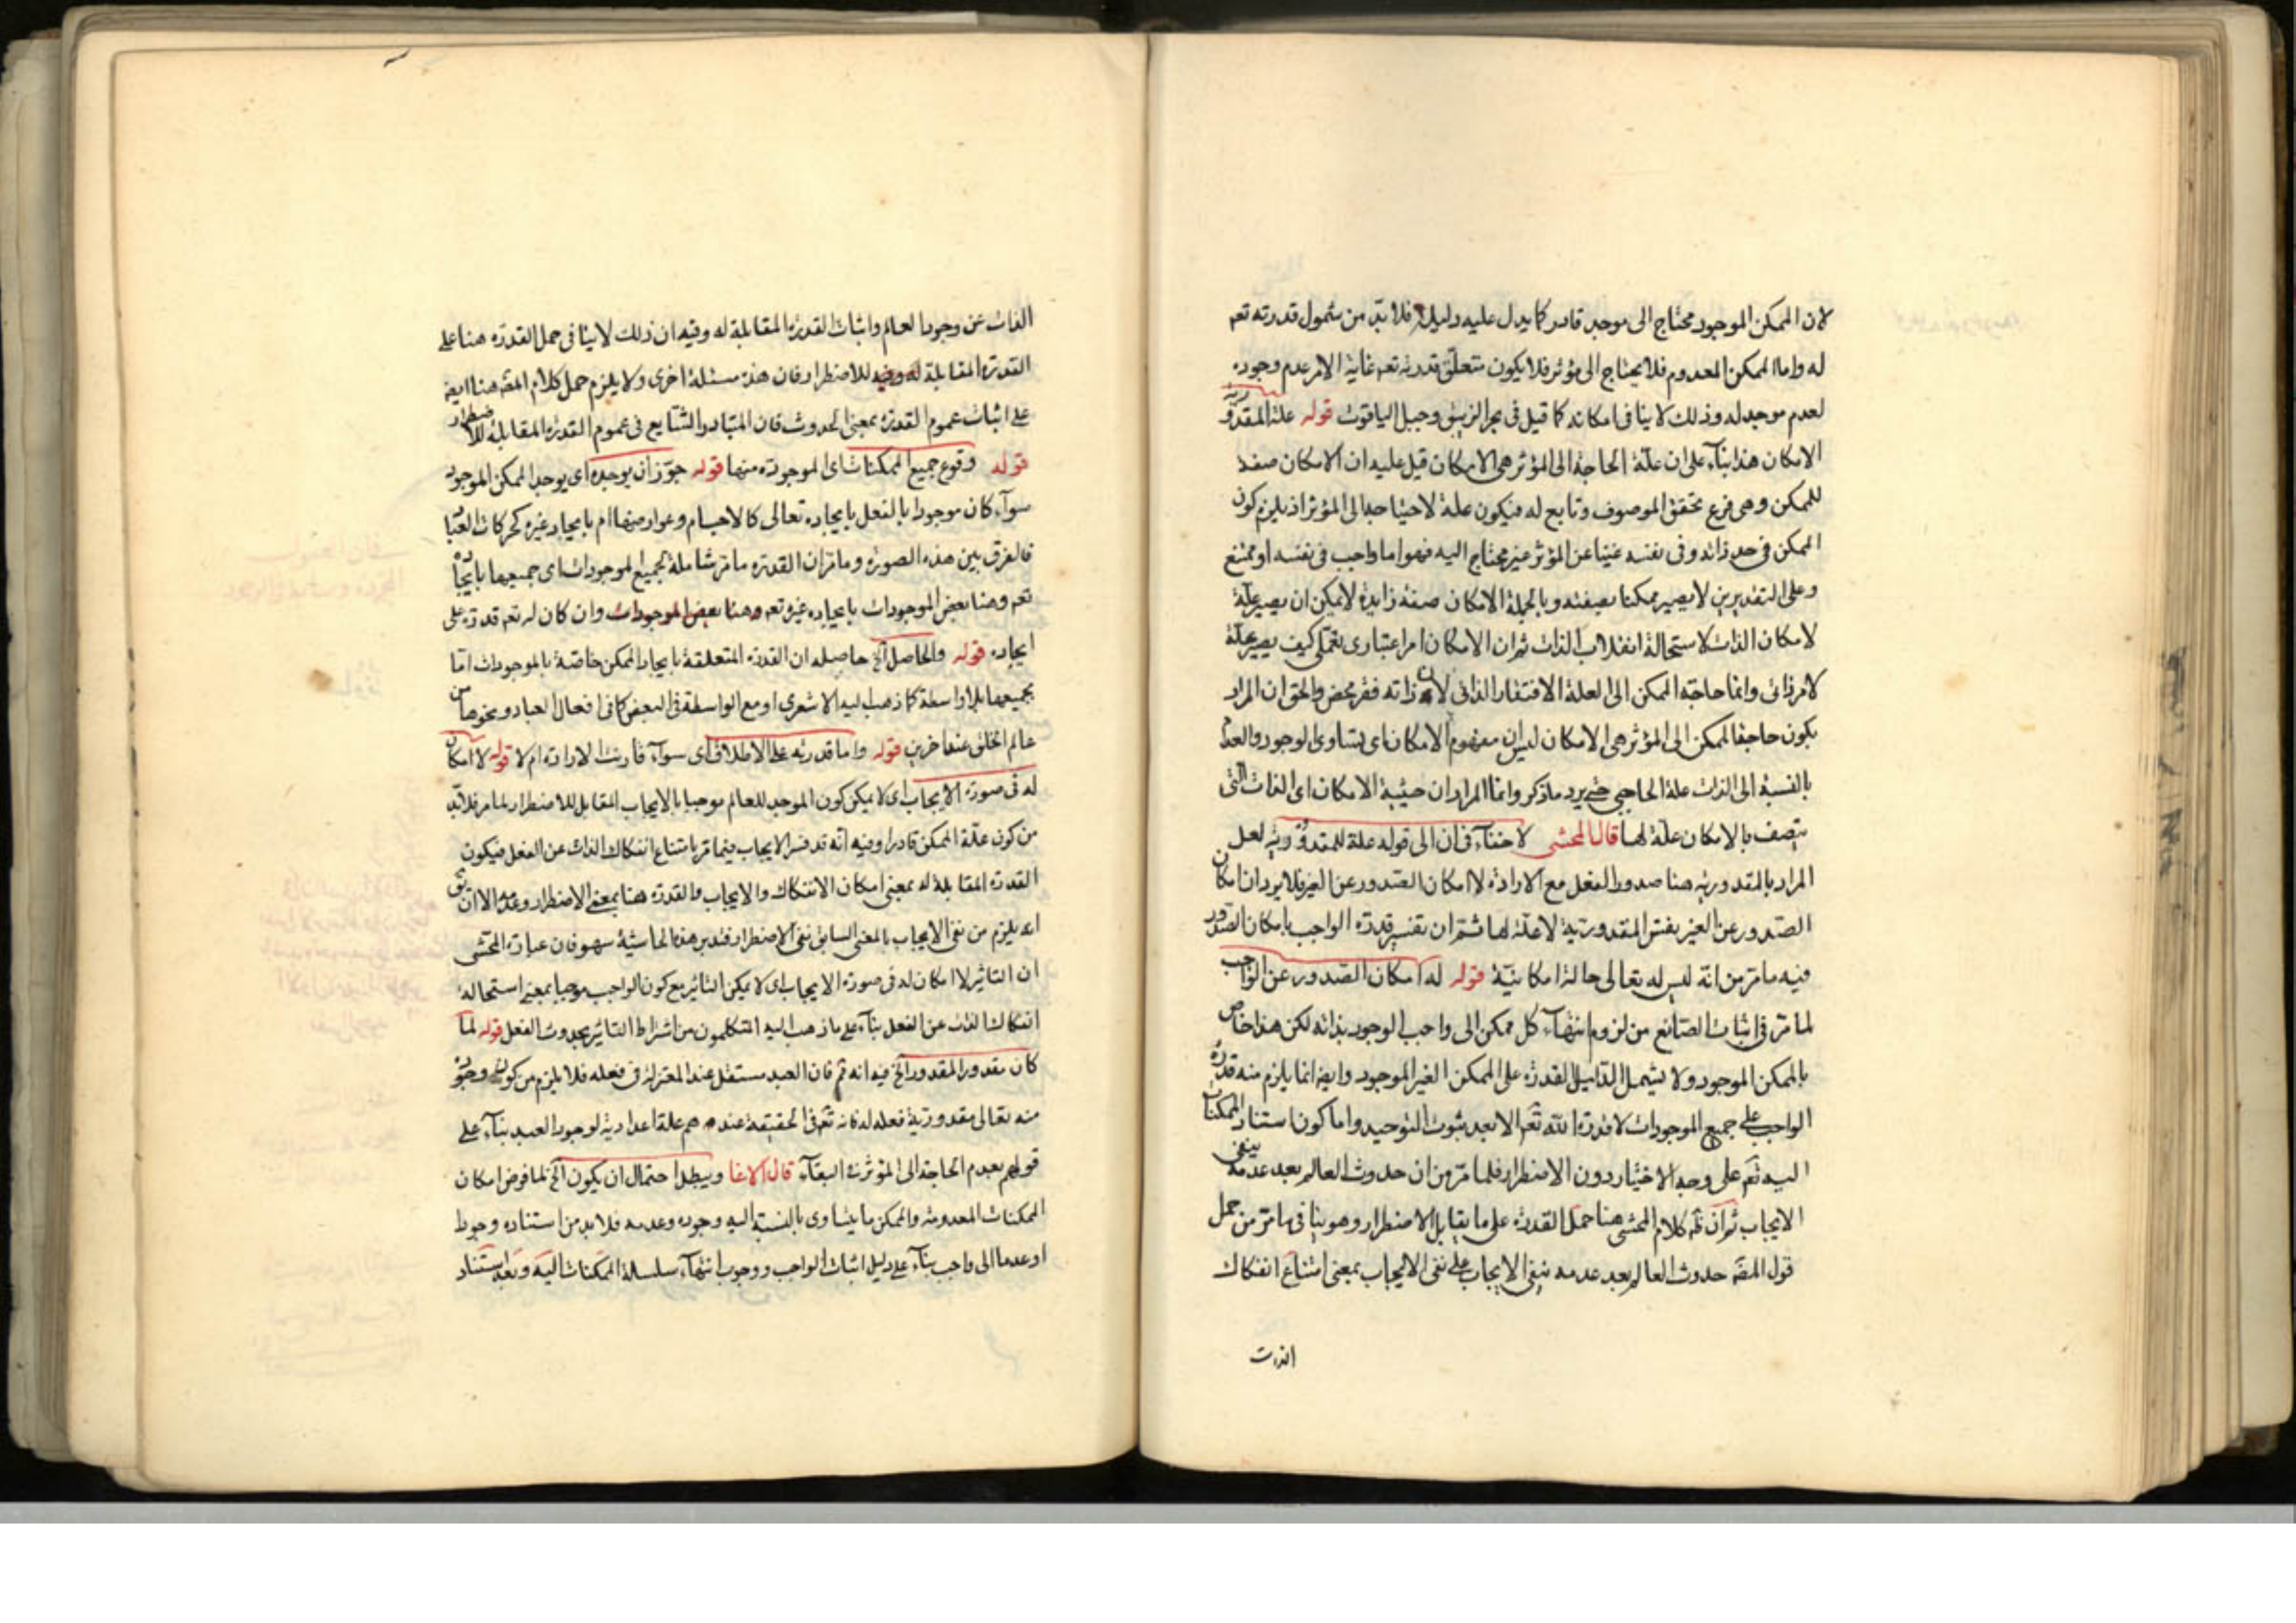 لان الممكن الموجود محتاج الى موجد قادر كما يدل عليه دليل فلا بد من شمول قدرته تعم
له واما الممكن المعدوم فلا يحتاج الى مؤثر فلا يكون متعلق قدرته تعم غاية الامر عدم وجوده
لعدم موجد له وذلك لا ينافى امكانه كما قيل فى بحر الزيبق وجبل الياقوت قوله علة المقدورية
الامكان هذا بناء على ان علة الحاجة الى المؤثر هى الامكان قيل عليه ان الامكان صفة
للممكن وهى فرع تحقق الموصوف وتابع له فيكون علة لاحتياجه الى المؤثر اذ يلزم كون
الممكن فى حد ذاته وفى نفسه غنيا عن المؤثر غير محتاج اليه فهو اما واجب فى نفسه او ممتنع
وعلى التقديرين لا يصير ممكنا بصفته وبالجملة الامكان صفة زايدة لا يمكن ان يصير علة
لامكان الذات لاستحالة انقلاب الذات ثم ان الامكان امر اعتبارى تعملى كيف يصير علة
لامر ذاتى وانما حاجة الممكن الى العلة الافتقار الذاتى لان ذاته فقر محض والحق ان المراد
بكون حاجة الممكن الى المؤثر هى الامكان ليس ان مفهوم الامكان اى تساوى الوجود والعدم
بالنسبة الى الذات علة الحاجة حتى يرد ما ذكر وانما المراد ان حيثية الامكان اى الذات التى
يتصف بالامكان علة لها قال المحشى لا خفاء فى ان الى قوله علة للمقدورية لعل
المراد بالمقدورية هنا صدور الفعل مع الارادة لا امكان الصدور عن الغير فلا يرد ان امكان
الصدور عن الغير نفس المقدورية لا علة لها ثم ان تفسير قدرة الواجب بامكان الصدور
فيه ما مر من انه ليس له تعالى حالة امكانية قوله له امكان الصدور عن الواجب
لما مر فى اثبات الصانع من لزوم انتهاء كل ممكن الى واجب الوجود بذاته لكن هذا خاص
بالممكن الموجود ولا يشمل الدليل القدرة على الممكن الغير الموجود وايضا انما يلزم منه قدرة
الواجب على جميع الموجودات لا قدرة الله تعم الا بعد ثبوت التوحيد واما كون استناد الممكنات
اليه تعم على وجه الاختيار دون الاضطرار فلما مر من ان حدوث العالم بعد عدمه ينفى
الايجاب ثم ان ظم كلام المحشى هنا حمل القدرة على ما يقابل الاضطرار وهو ينافى ما مر من حمل
قول المصه حدوث العالم بعد عدمه ينفى الايجاب على نفى الايجاب بمعنى امتناع انفكاك
الذات
الذات عن وجود العالم واثبات القدرة المقابلة له وفيه ان ذلك لا ينافى حمل القدرة هنا على
القدرة المقابلة للاضطرار فان هذه مسئلة اخرى ولا يلزم حمل كلام المصه هنا ايضا
على اثبات عموم القدرة بمعنى الحدوث فان المتبادر الشايع فى عموم القدرة المقابلة للاضطرار
قوله وقوع جميع الممكنات اى الموجودة منها قوله جوز ان يوجده اى يوجد الممكن الموجود
سواء كان موجودا بالفعل بايجاده تعالى كالاجسام وعوارضها ام بايجاد غيره كحركات العباد
فالفرق بين هذه الصورة وما مر ان القدرة ما مر شاملة لجميع الموجودات اى جميعها بايجاده
تعم وهنا بعض الموجودات بايجاده غيره تعم وهنا بعض الموجودات وان كان له تعم قدرة على
ايجاده قوله والحاصل الخ حاصله ان القدرة المتعلقة بايجاد الممكن خاصة بالموجودات اما
بجميعها بلا واسطة كما ذهب اليه الاشعرى او مع الواسطة فى البعض كما فى افعال العباد ونحوها من
عالم الخلق عند اخرين قوله واما قدرته على الاطلاق اى سواء قارنت الارادة ام لا قوله لا امكان
له فى صورة الايجاب اى لا يمكن كون الموجد للعالم موجبا بالايجاب المقابل للاضطرار لما مر فلا بد
من كون علة الممكن قادرا وفيه انه قد فسر الايجاب فيما مر بامتناع انفكاك الذات عن الفعل فيكون
القدرة المقابلة له بمعنى امكان الانفكاك والايجاب والقدرة هنا بمعنى الاضطرار وعدمه الا ان يق
انه يلزم من نفى الايجاب بالمعنى السابق نفى الاضطرار فتدبر هذه الحاشية سهو فان عبارة المحشى
ان التاثير لا امكان له فى صورة الايجاب اى لا يمكن التاثير مع كون الواجب موجبا بمعنى استحالة
انفكاك الذات عن الفعل بناء على ما ذهب اليه المتكلمون من اشتراط التاثير بحدوث الفعل قوله لما
كان مقدور المقدور الخ فيه انه ثم فان العبد مستقل عند المعتزلة فى فعله فلا يلزم من كون وجوده
منه تعالى مقدورية فعله له فانه تعم فى الحقيقة عندهم علة اعدادية لوجود العبد بناء على
قولهم بعدم الحاجة الى المؤثر فى البقاء قال الاغا ويبطل احتمال ان يكون الخ لما فرض امكان
الممكنات المعدومة والممكن ما يتساوى بالنسبة اليه وجوده وعدمه فلا بد من استناده وجودا
او عدما الى واجب بناء على دليل اثبات الواجب ووجوب انتهاء سلسلة الممكنات اليه وبعد استناد